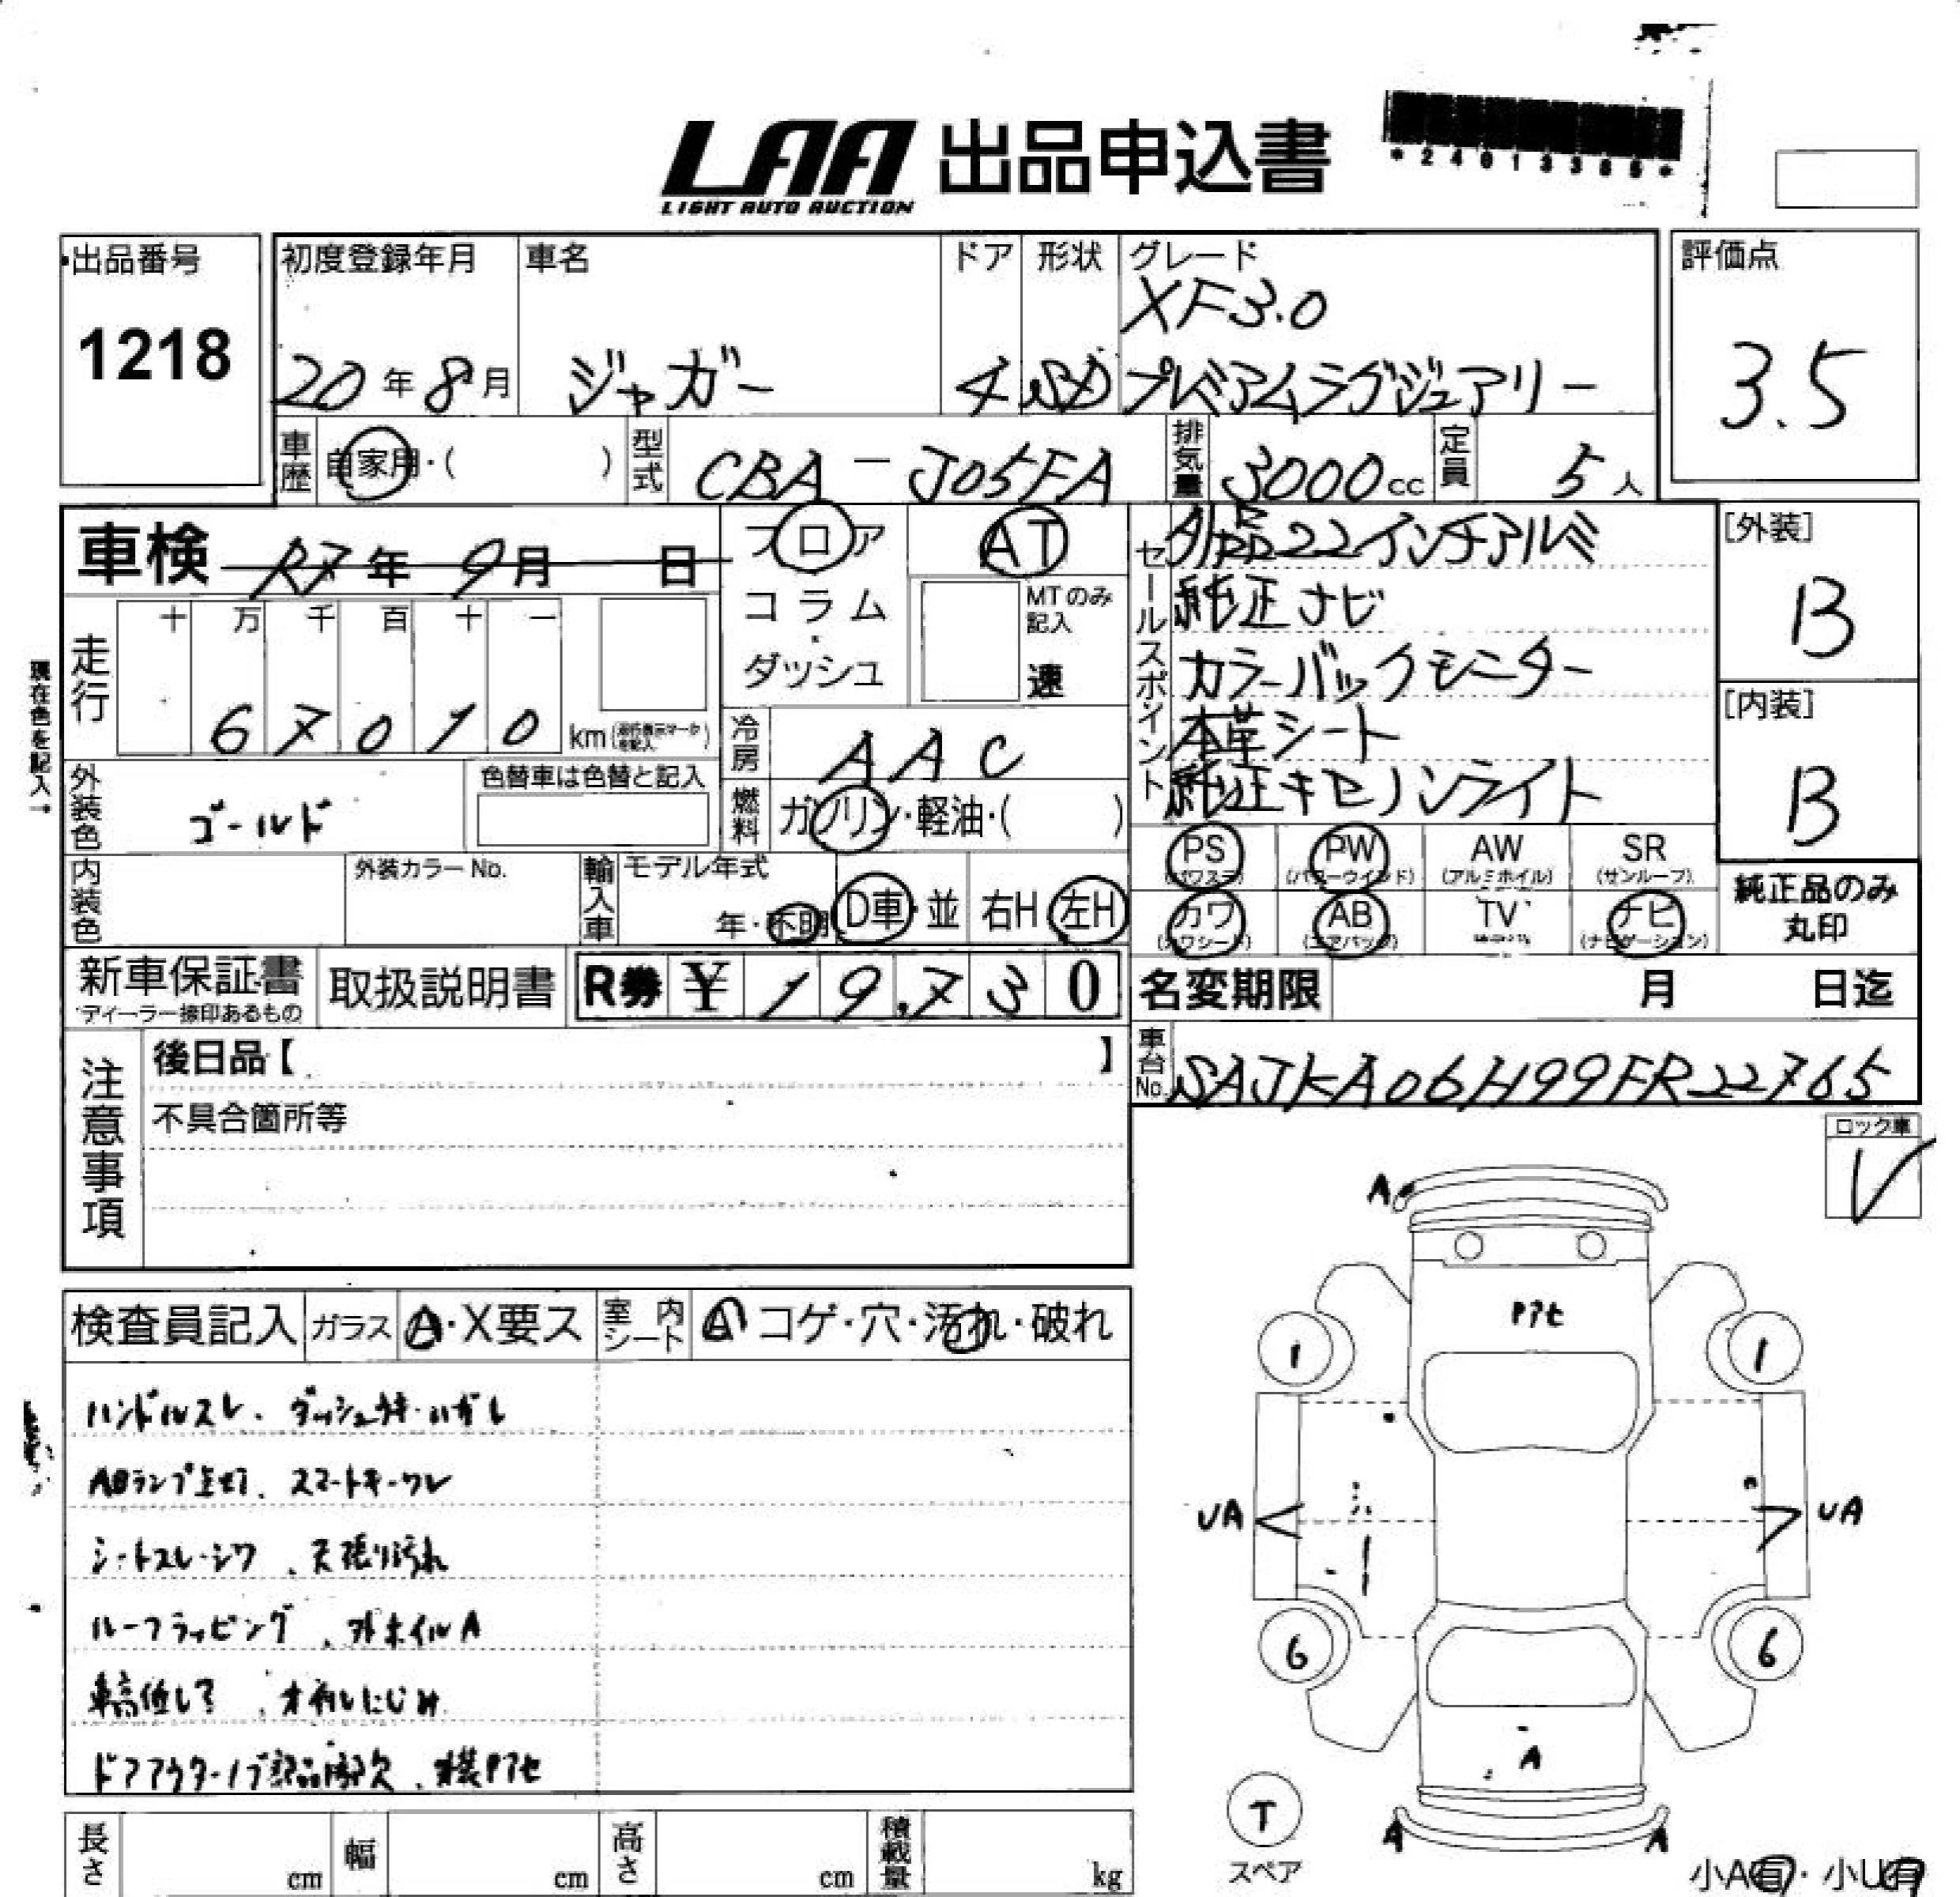 LAA 出品申込書
LIGHT AUTO AUCTION
*24013385*
出品番号
1218
初度登録年月
20年8月
車名
ジャガー
ドア
4
形状
SD
グレード
XF3.0
プレミアムラグジュアリー
評価点
3.5
車歴 自家用・( )
型式 CBA-J05FA
排気量 3000cc
定員 5人
車検 R7年9月 日
フロア
コラム
ダッシュ
AT
MTのみ記入
速
セールスポイント
外品22インチアルミ
純正ナビ
カラーバックモニター
本革シート
純正キセノンライト
[外装]
B
[内装]
B
現在色を記入→
走行
十 万 千 百 十 一
6 7 0 1 0 km
冷房 AAC
外装色 ゴールド
色替車は色替と記入
燃料 ガソリン・軽油・( )
PS (パワステ)
PW (パワーウインド)
AW (アルミホイル)
SR (サンルーフ)
カワ (カワシート)
AB (エアバッグ)
TV
ナビ (ナビゲーション)
純正品のみ
丸印
内装色
外装カラーNo.
輸入車
モデル年式
年・不明
D車・並
右H 左H
新車保証書
ディーラー捺印あるもの
取扱説明書
R券 ¥ 19,730
名変期限 月 日迄
車台No. SAJKA06H99FR22765
注意事項
後日品【 】
不具合箇所等
ロック車
✓
検査員記入
ガラス A・X要ス
室内シート A コゲ・穴・汚れ・破れ
ハンドルスレ、ダッシュウキ・ハガレ
ABランプ点灯、スマートキーワレ
シートスレ・シワ、天張り汚れ
ルーフラッピング、外ホイルA
車高低し?、オイルにじみ
ドアアウターノブ部品欠、
A
Pアセ
1 1
UA UA
6 6
A
A A
T
スペア
長さ cm
幅 cm
高さ cm
積載量 kg
小A有・小U有